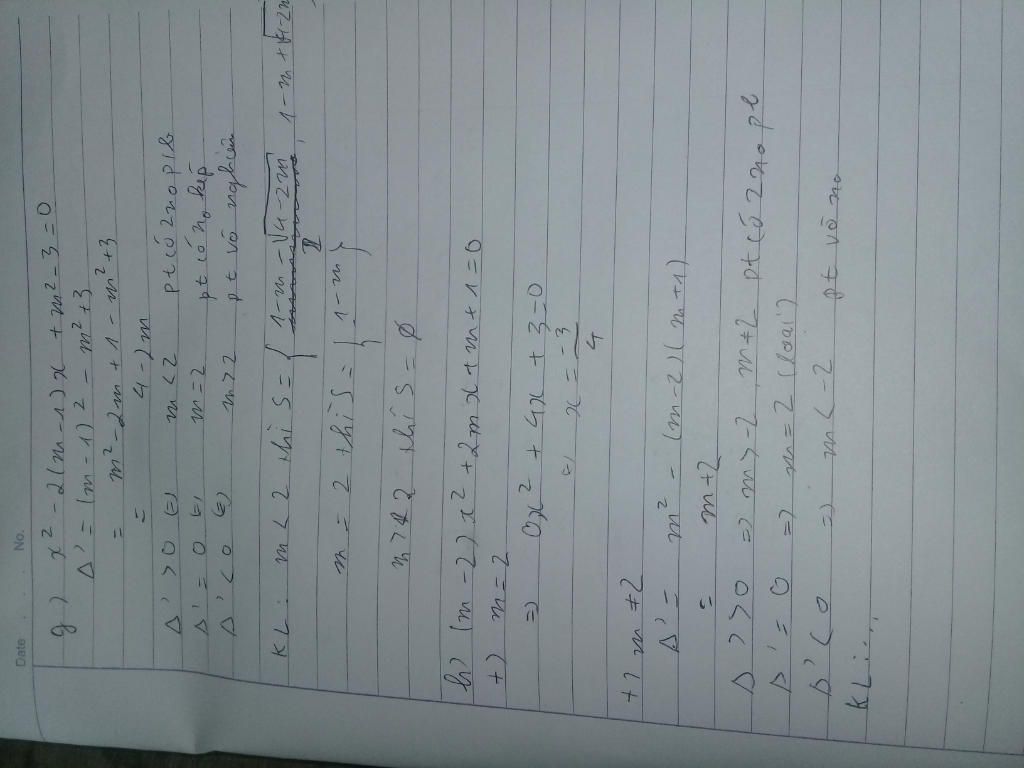 Date . . . . No.
g) x² - 2(m-1)x + m² - 3 = 0
Δ' = (m-1)² - m² + 3
= m² - 2m + 1 - m² + 3
= 4 - 2m
Δ' > 0 (=) m < 2 pt có 2 no pb
Δ' = 0 (=) m = 2 pt có no kép
Δ' < 0 (=) m > 2 pt vô nghiệm
KL: m < 2 thì S = { 1-m-√4-2m, 1-m+√4-2m
m = 2 thì S = { 1-m }
m > 2 thì S = ∅
h) (m-2)x² + 2mx + m + 1 = 0
+) m = 2
=) 0x² + 4x + 3 = 0
=) x = -3/4
+) m ≠ 2
Δ' = m² - (m-2)(m+1)
= m+2
Δ' > 0 =) m > -2, m ≠ 2 pt có 2 no pb
Δ' = 0 =) m = 2 (loại)
Δ' < 0 =) m < -2 pt vô no
KL: ...